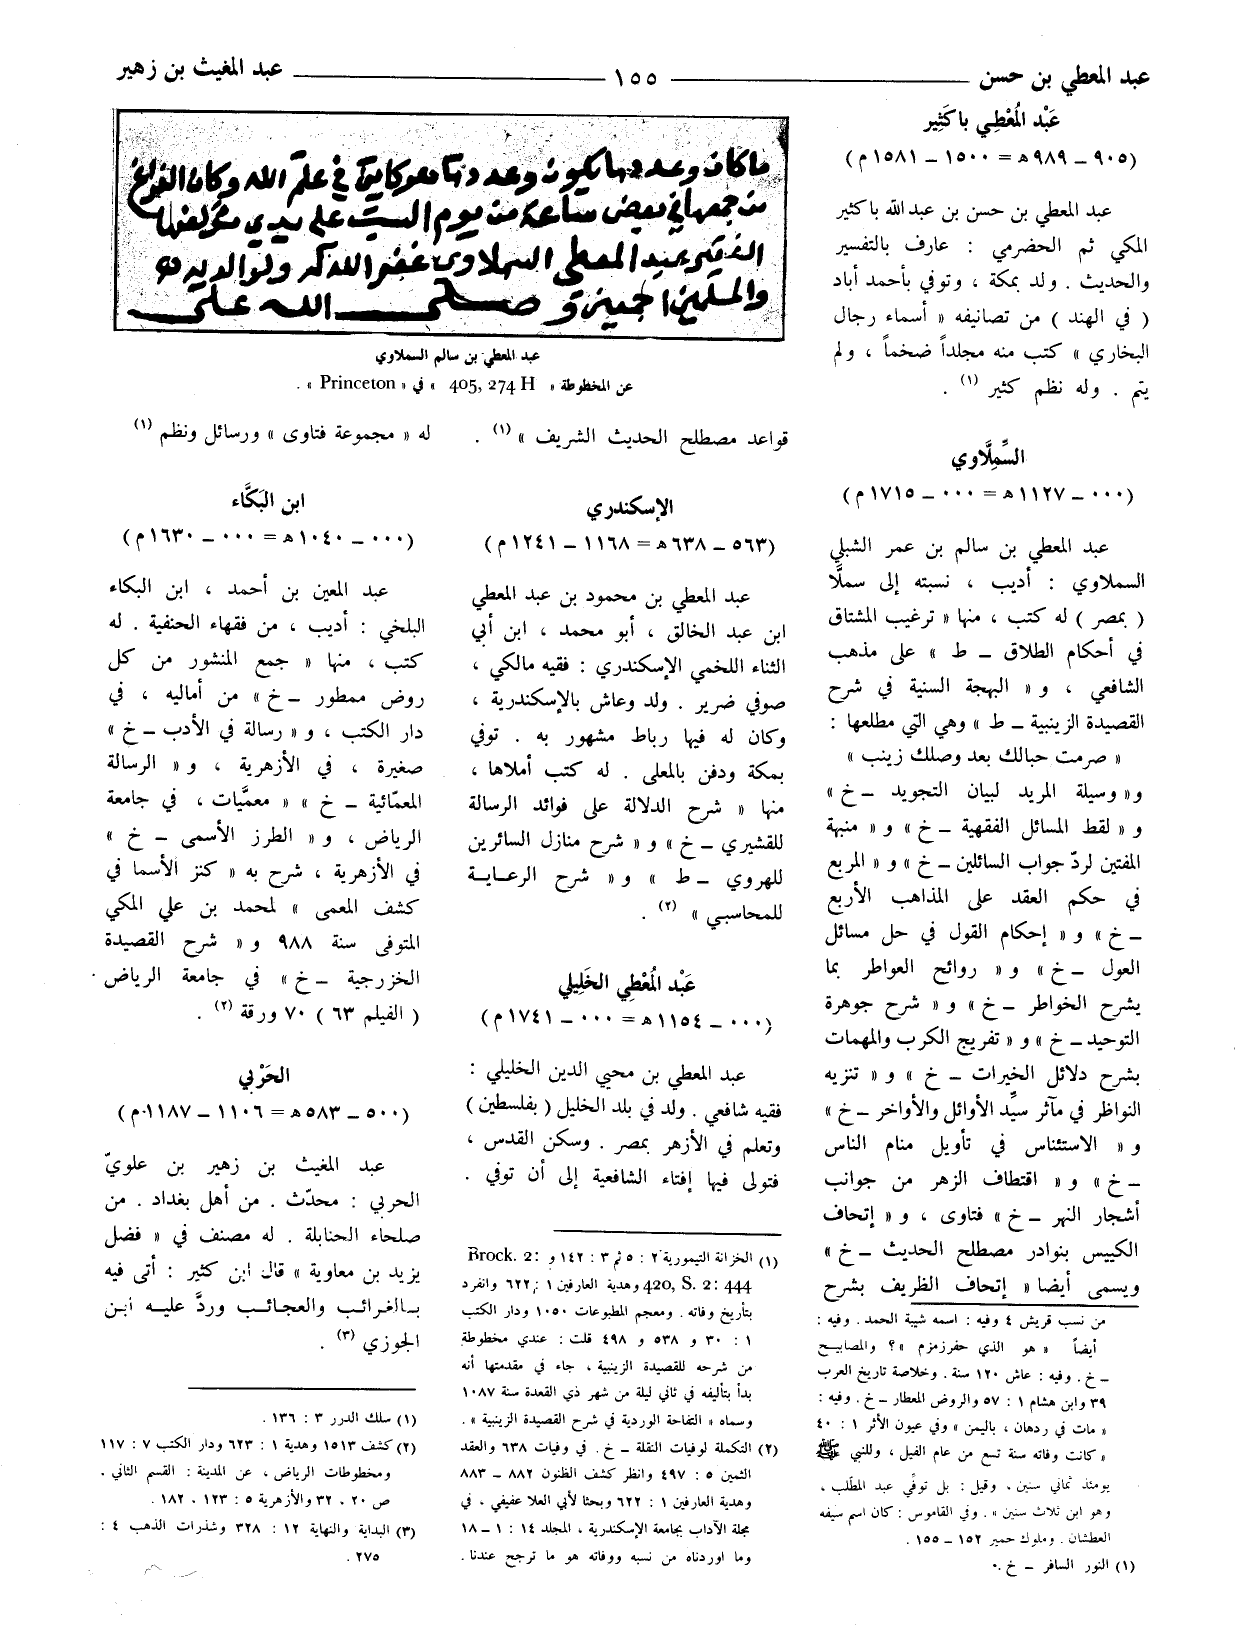 عبد المعطي بن حسن ــــــ ١٥٥ ــــــ عبد المغيث بن زهير
عَبْد المُعْطِي باكَثِير
(٩٠٥ ــ ٩٨٩ هـ = ١٥٠٠ ــ ١٥٨١ م)
عبد المعطي بن حسن بن عبد الله باكثير
المكي ثم الحضرمي : عارف بالتفسير
والحديث . ولد بمكة ، وتوفي بأحمد أباد
( في الهند ) من تصانيفه « أسماء رجال
البخاري » كتب منه مجلداً ضخماً ، ولم
يتم . وله نظم كثير (١) .
السِّمِلَّاوي
(٠٠٠ ــ ١١٢٧ هـ = ٠٠٠ ــ ١٧١٥ م)
عبد المعطي بن سالم بن عمر الشبلي
السملاوي : أديب ، نسبته إلى سملَّا
( بمصر ) له كتب ، منها « ترغيب المشتاق
في أحكام الطلاق ــ ط » على مذهب
الشافعي ، و « البهجة السنية في شرح
القصيدة الزينبية ــ ط » وهي التي مطلعها :
« صرمت حبالك بعد وصلك زينب »
و« وسيلة المريد لبيان التجويد ــ خ »
و « لقط المسائل الفقهية ــ خ » و « منبهة
المفتين لردّ جواب السائلين ــ خ » و « المربع
في حكم العقد على المذاهب الأربع
ــ خ » و « إحكام القول في حل مسائل
العول ــ خ » و « روائح العواطر بما
يشرح الخواطر ــ خ » و « شرح جوهرة
التوحيد ــ خ » و « تفريج الكرب والمهمات
بشرح دلائل الخيرات ــ خ » و « تنزيه
النواظر في مآثر سيِّد الأوائل والأواخر ــ خ »
و « الاستئناس في تأويل منام الناس
ــ خ » و « اقتطاف الزهر من جوانب
أشجار النهر ــ خ » فتاوى ، و « إتحاف
الكييس بنوادر مصطلح الحديث ــ خ »
ويسمى أيضا « إتحاف الظريف بشرح
من نسب قريش ٤ وفيه : اسمه شيبة الحمد . وفيه :
أيضاً « هو الذي حفر زمزم »؟ والمصابيح
ــ خ . وفيه : عاش ١٢٠ سنة . وخلاصة تاريخ العرب
٣٩ وابن هشام ١ : ٥٧ والروض المعطار ــ خ . وفيه :
« مات في ردهان ، باليمن » وفي عيون الأثر ١ : ٤٠
« كانت وفاته سنة تسع من عام الفيل ، وللنبي ﷺ
يومئذ ثماني سنين ، وقيل : بل توفّي عبد المطّلب ،
وهو ابن ثلاث سنين » . وفي القاموس : كان اسم سيفه
العطشان . وملوك حمير ١٥٢ ــ ١٥٥ .
(١) النور السافر ــ خ .
ماكان وعدد ما يكون وعدد ما هو كاين في علم الله وكان الفراغ
من جمعها في بعض ساعة من يوم السبت على يدي مؤلفها
الفقير عبد المعطي السملاوي غفر الله له ولوالديه
والمسلمين اجمعين وصلى الله على
عبد المعطي بن سالم السملاوي
عن المخطوطة « 405, 274 H » في « Princeton » .
قواعد مصطلح الحديث الشريف » (١) .
الإسكندري
(٥٦٣ ــ ٦٣٨ هـ = ١١٦٨ ــ ١٢٤١ م)
عبد المعطي بن محمود بن عبد المعطي
ابن عبد الخالق ، أبو محمد ، ابن أبي
الثناء اللخمي الإسكندري : فقيه مالكي ،
صوفي ضرير . ولد وعاش بالإسكندرية ،
وكان له فيها رباط مشهور به . توفي
بمكة ودفن بالمعلى . له كتب أملاها ،
منها « شرح الدلالة على فوائد الرسالة
للقشيري ــ خ » و « شرح منازل السائرين
للهروي ــ ط » و « شرح الرعاية
للمحاسبي » (٢) .
عَبْد المُعْطِي الخَلِيلي
(٠٠٠ ــ ١١٥٤ هـ = ٠٠٠ ــ ١٧٤١ م)
عبد المعطي بن محيي الدين الخليلي :
فقيه شافعي . ولد في بلد الخليل ( بفلسطين )
وتعلم في الأزهر بمصر . وسكن القدس ،
فتولى فيها إفتاء الشافعية إلى أن توفي .
(١) الخزانة التيمورية ٢ : ٥ ثم ٣ : ١٤٢ و Brock. 2:
420, S. 2: 444 وهدية العارفين ١ : ٦٢٢ وانفرد
بتأريخ وفاته . ومعجم المطبوعات ١٠٥٠ ودار الكتب
١ : ٣٠ و ٥٣٨ و ٤٩٨ قلت : عندي مخطوطة
من شرحه للقصيدة الزينبية ، جاء في مقدمتها أنه
بدأ بتأليفه في ثاني ليلة من شهر ذي القعدة سنة ١٠٨٧
وسماه « التفاحة الوردية في شرح القصيدة الزينبية » .
(٢) التكملة لوفيات النقلة ــ خ . في وفيات ٦٣٨ والعقد
الثمين ٥ : ٤٩٧ وانظر كشف الظنون ٨٨٢ ــ ٨٨٣
وهدية العارفين ١ : ٦٢٢ وبحثا لأبي العلا عفيفي ، في
مجلة الآداب بجامعة الإسكندرية ، المجلد ١٤ : ١ ــ ١٨
وما اوردناه من نسبه ووفاته هو ما ترجح عندنا .
له « مجموعة فتاوى » ورسائل ونظم (١)
ابن البَكَّاء
(٠٠٠ ــ ١٠٤٠ هـ = ٠٠٠ ــ ١٦٣٠ م)
عبد المعين بن أحمد ، ابن البكاء
البلخي : أديب ، من فقهاء الحنفية . له
كتب ، منها « جمع المنشور من كل
روض ممطور ــ خ » من أماليه ، في
دار الكتب ، و « رسالة في الأدب ــ خ »
صغيرة ، في الأزهرية ، و « الرسالة
المعمّائية ــ خ » « معمَّيات ، في جامعة
الرياض ، و « الطرز الأسمى ــ خ »
في الأزهرية ، شرح به « كنز الأسما في
كشف المعمى » لمحمد بن علي المكي
المتوفى سنة ٩٨٨ و « شرح القصيدة
الخزرجية ــ خ » في جامعة الرياض
( الفيلم ٦٣ ) ٧٠ ورقة (٢) .
الحَرْبي
(٥٠٠ ــ ٥٨٣ هـ = ١١٠٦ ــ ١١٨٧ م)
عبد المغيث بن زهير بن علويّ
الحربي : محدّث . من أهل بغداد . من
صلحاء الحنابلة . له مصنف في « فضل
يزيد بن معاوية » قال ابن كثير : أتى فيه
بالغرائب والعجائب وردَّ عليه ابن
الجوزي (٣) .
(١) سلك الدرر ٣ : ١٣٦ .
(٢) كشف ١٥١٣ وهدية ١ : ٦٢٣ ودار الكتب ٧ : ١١٧
ومخطوطات الرياض ، عن المدينة : القسم الثاني .
ص ٢٠ ، ٣٢ والأزهرية ٥ : ١٢٣ ، ١٨٢ .
(٣) البداية والنهاية ١٢ : ٣٢٨ وشذرات الذهب ٤ :
٢٧٥ .